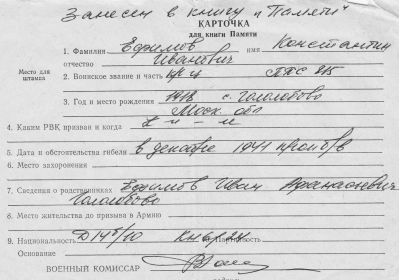 Занесен в книгу "Памяти"
КАРТОЧКА
для книги Памяти
1. Фамилия Ефимов имя Константин
отчество Иванович
Место для
штампа
2. Воинское звание и часть кр-ц ППС
3. Год и место рождения 1918 с. Гололобово
Моск. обл
4. Каким РВК призван и когда
5. Дата и обстоятельства гибели в декабре 1941 проп б/в
6. Место захоронения
7. Сведения о родственниках Ефимов Иван Афанасьевич
Гололобово
8. Место жительства до призыва в Армию
9. Национальность Партийность
Основание
ВОЕННЫЙ КОМИССАР